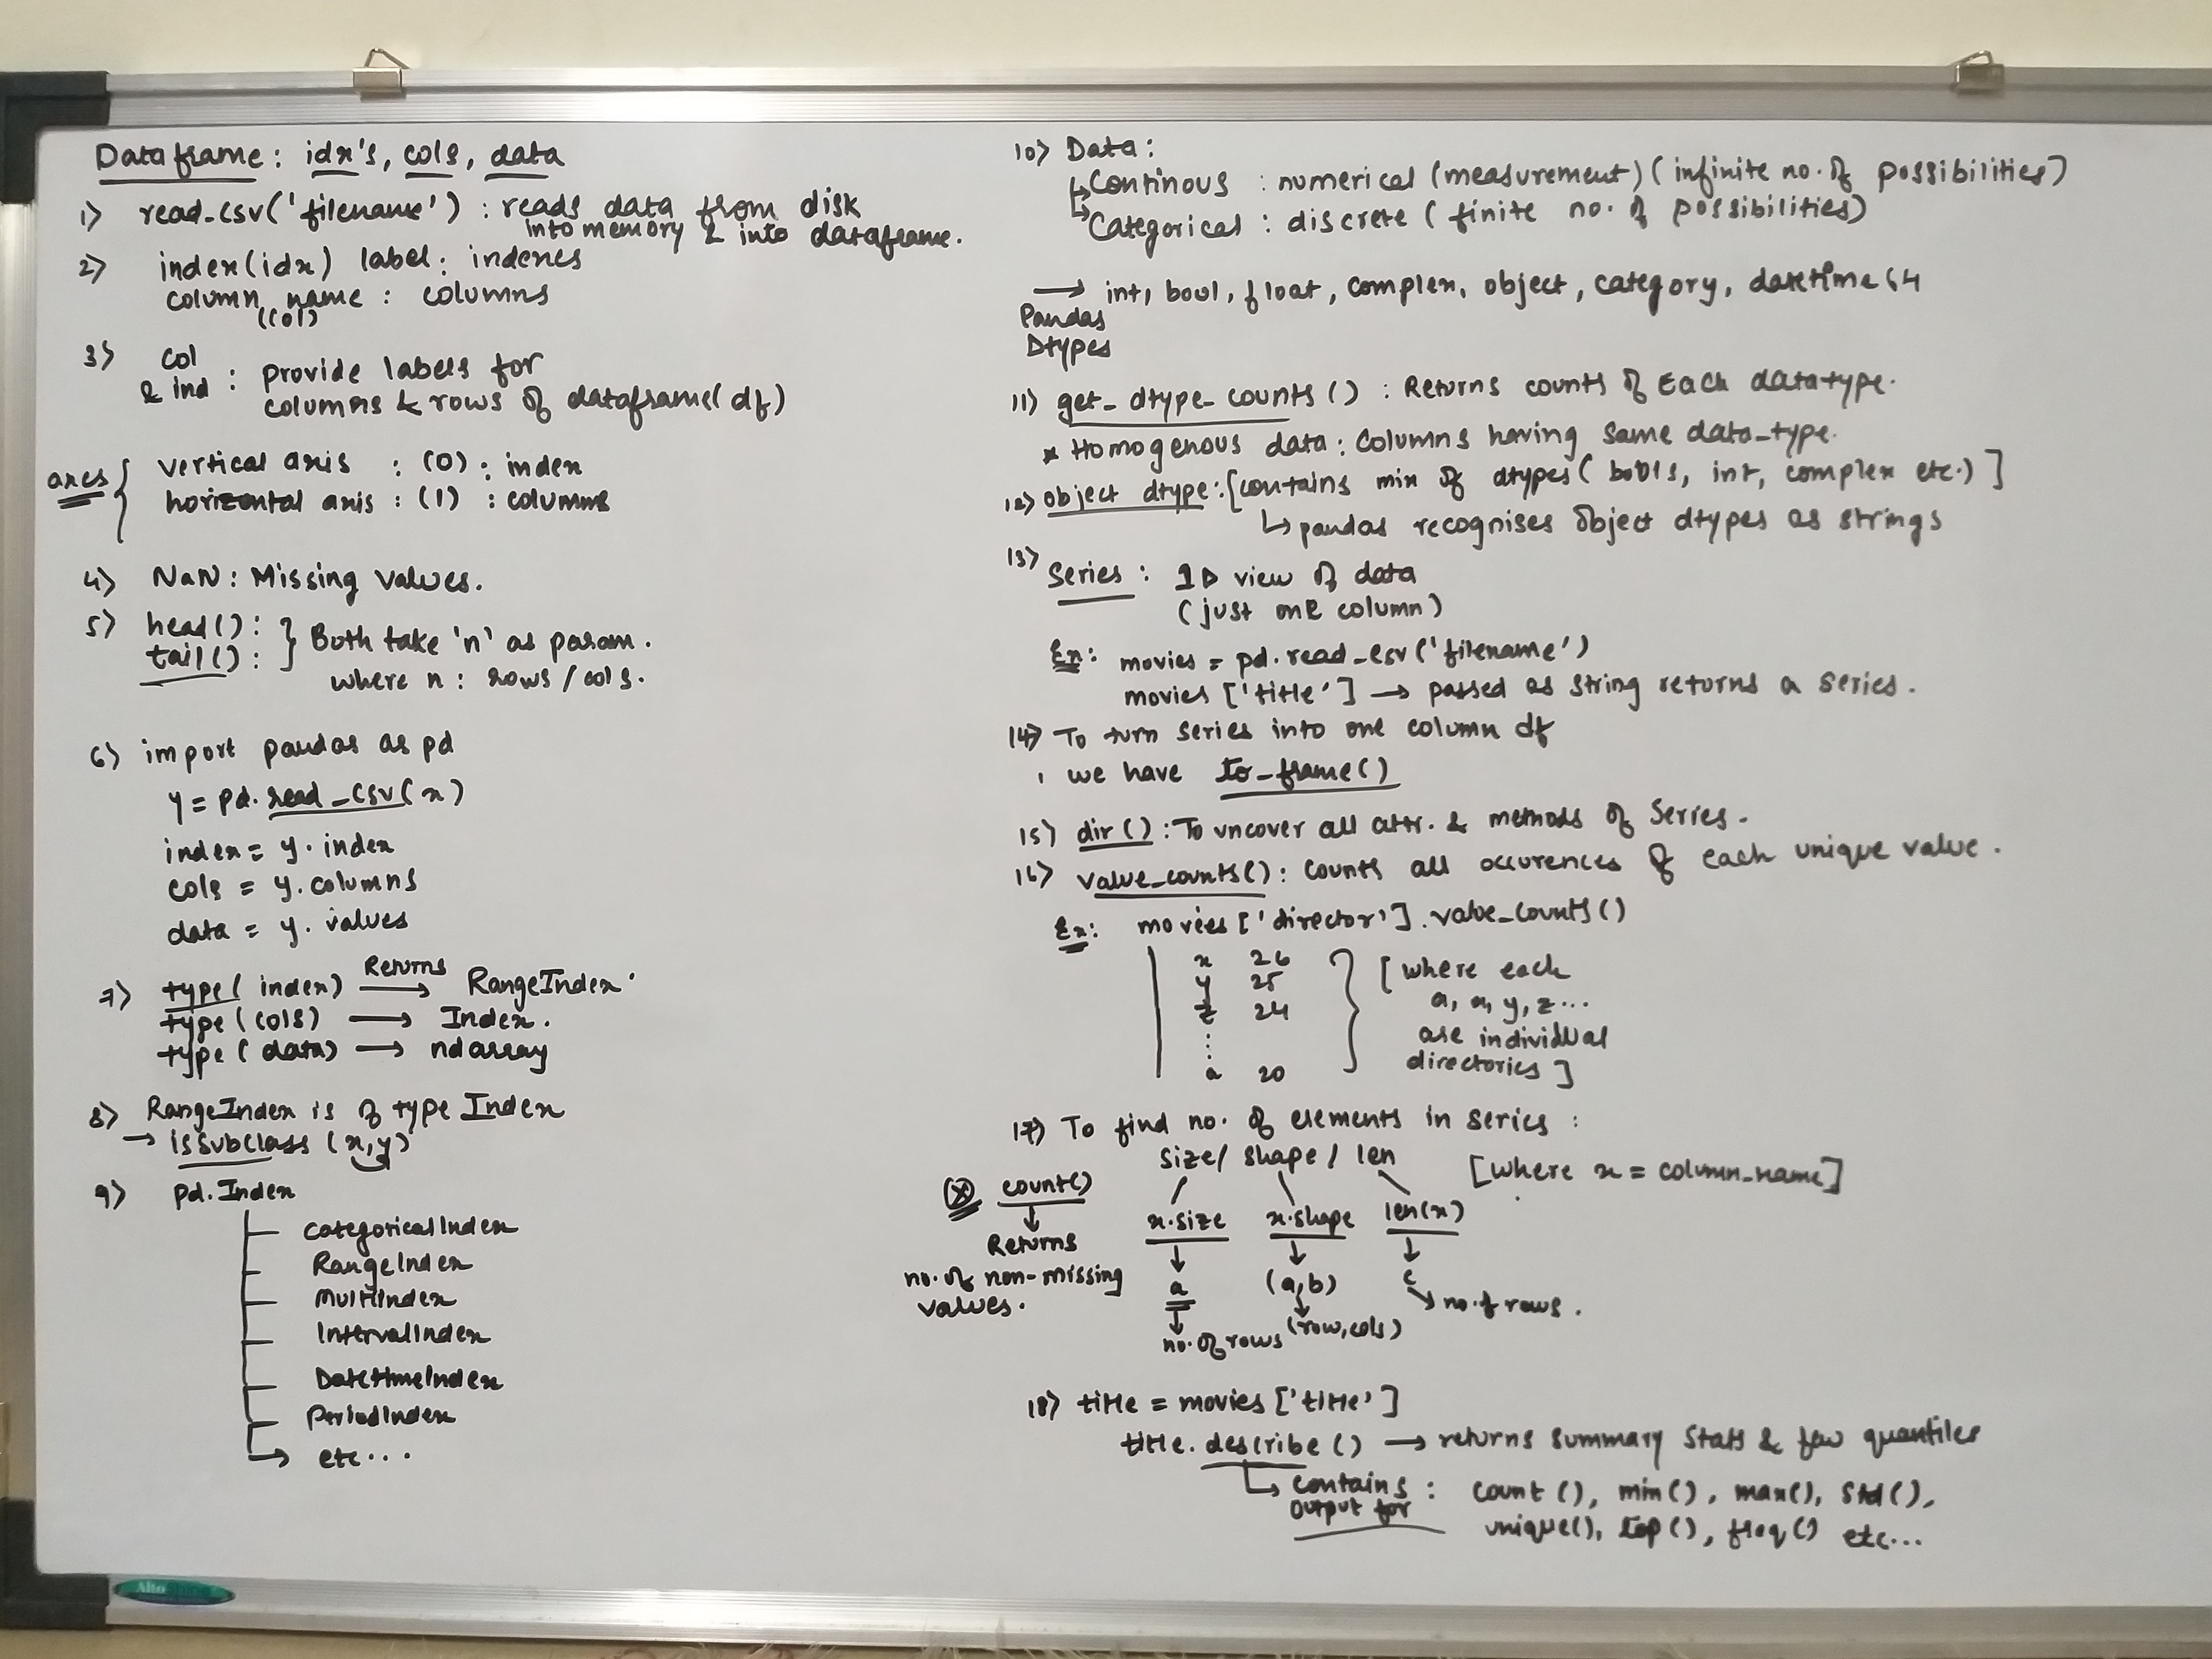 Dataframe: idx's, cols, data
1) read_csv('filename') : reads data from disk
into memory & into dataframe.
2) index(idx) label: indexes
column name : columns
(col)
3) col
& ind : provide labels for
columns & rows of dataframe(df)
axes { vertical axis : (0) : index
horizontal axis : (1) : columns
4) NaN: Missing values.
5) head(): } Both take 'n' as param.
tail():
where n: rows/cols.
6) import pandas as pd
y = pd.read_csv(x)
index = y.index
cols = y.columns
data = y.values
7) type(index) Returns → RangeIndex.
type(cols) → Index.
type(data) → ndarray
8) RangeIndex is of type Index
→ issubclass (x,y)
9) pd.Index
CategoricalIndex
RangeIndex
MultiIndex
IntervalIndex
DatetimeIndex
PeriodIndex
→ etc...
10) Data:
↳ Continous : numerical (measurement) (infinite no. of possibilities)
↳ Categorical : discrete (finite no. of possibilities)
→ int, bool, float, complex, object, category, datetime64
Pandas
Dtypes
11) get_dtype_counts() : Returns counts of Each datatype.
* Homogenous data: Columns having same data_type.
12) object dtype: [contains mix of dtypes (bools, int, complex etc.)]
↳ pandas recognises object dtypes as strings
13) Series : 1D view of data
(just one column)
Ex: movies = pd.read_csv('filename')
movies ['title'] → passed as string returns a series.
14) To turn series into one column df
, we have to_frame()
15) dir() : To uncover all attr. & methods of Series.
16) value_counts() : Counts all occurences of each unique value.
Ex: movies ['director'].value_counts()
x 26
y 25
z 24
:
:
a 20
} [where each
a, x, y, z...
are individual
directories]
17) To find no. of elements in series :
size/ shape / len
[where x = column_name]
(*) count()
↓
Returns
no. of non-missing
values.
x.size x.shape len(x)
↓ ↓ ↓
a (a,b) c
↓ ↓ ↘ no. of rows.
no. of rows (row,cols)
18) title = movies ['title']
title.describe() → returns summary stats & few quantiles
↳ contains : count(), min(), max(), std(),
output for unique(), top(), freq() etc...
Alto